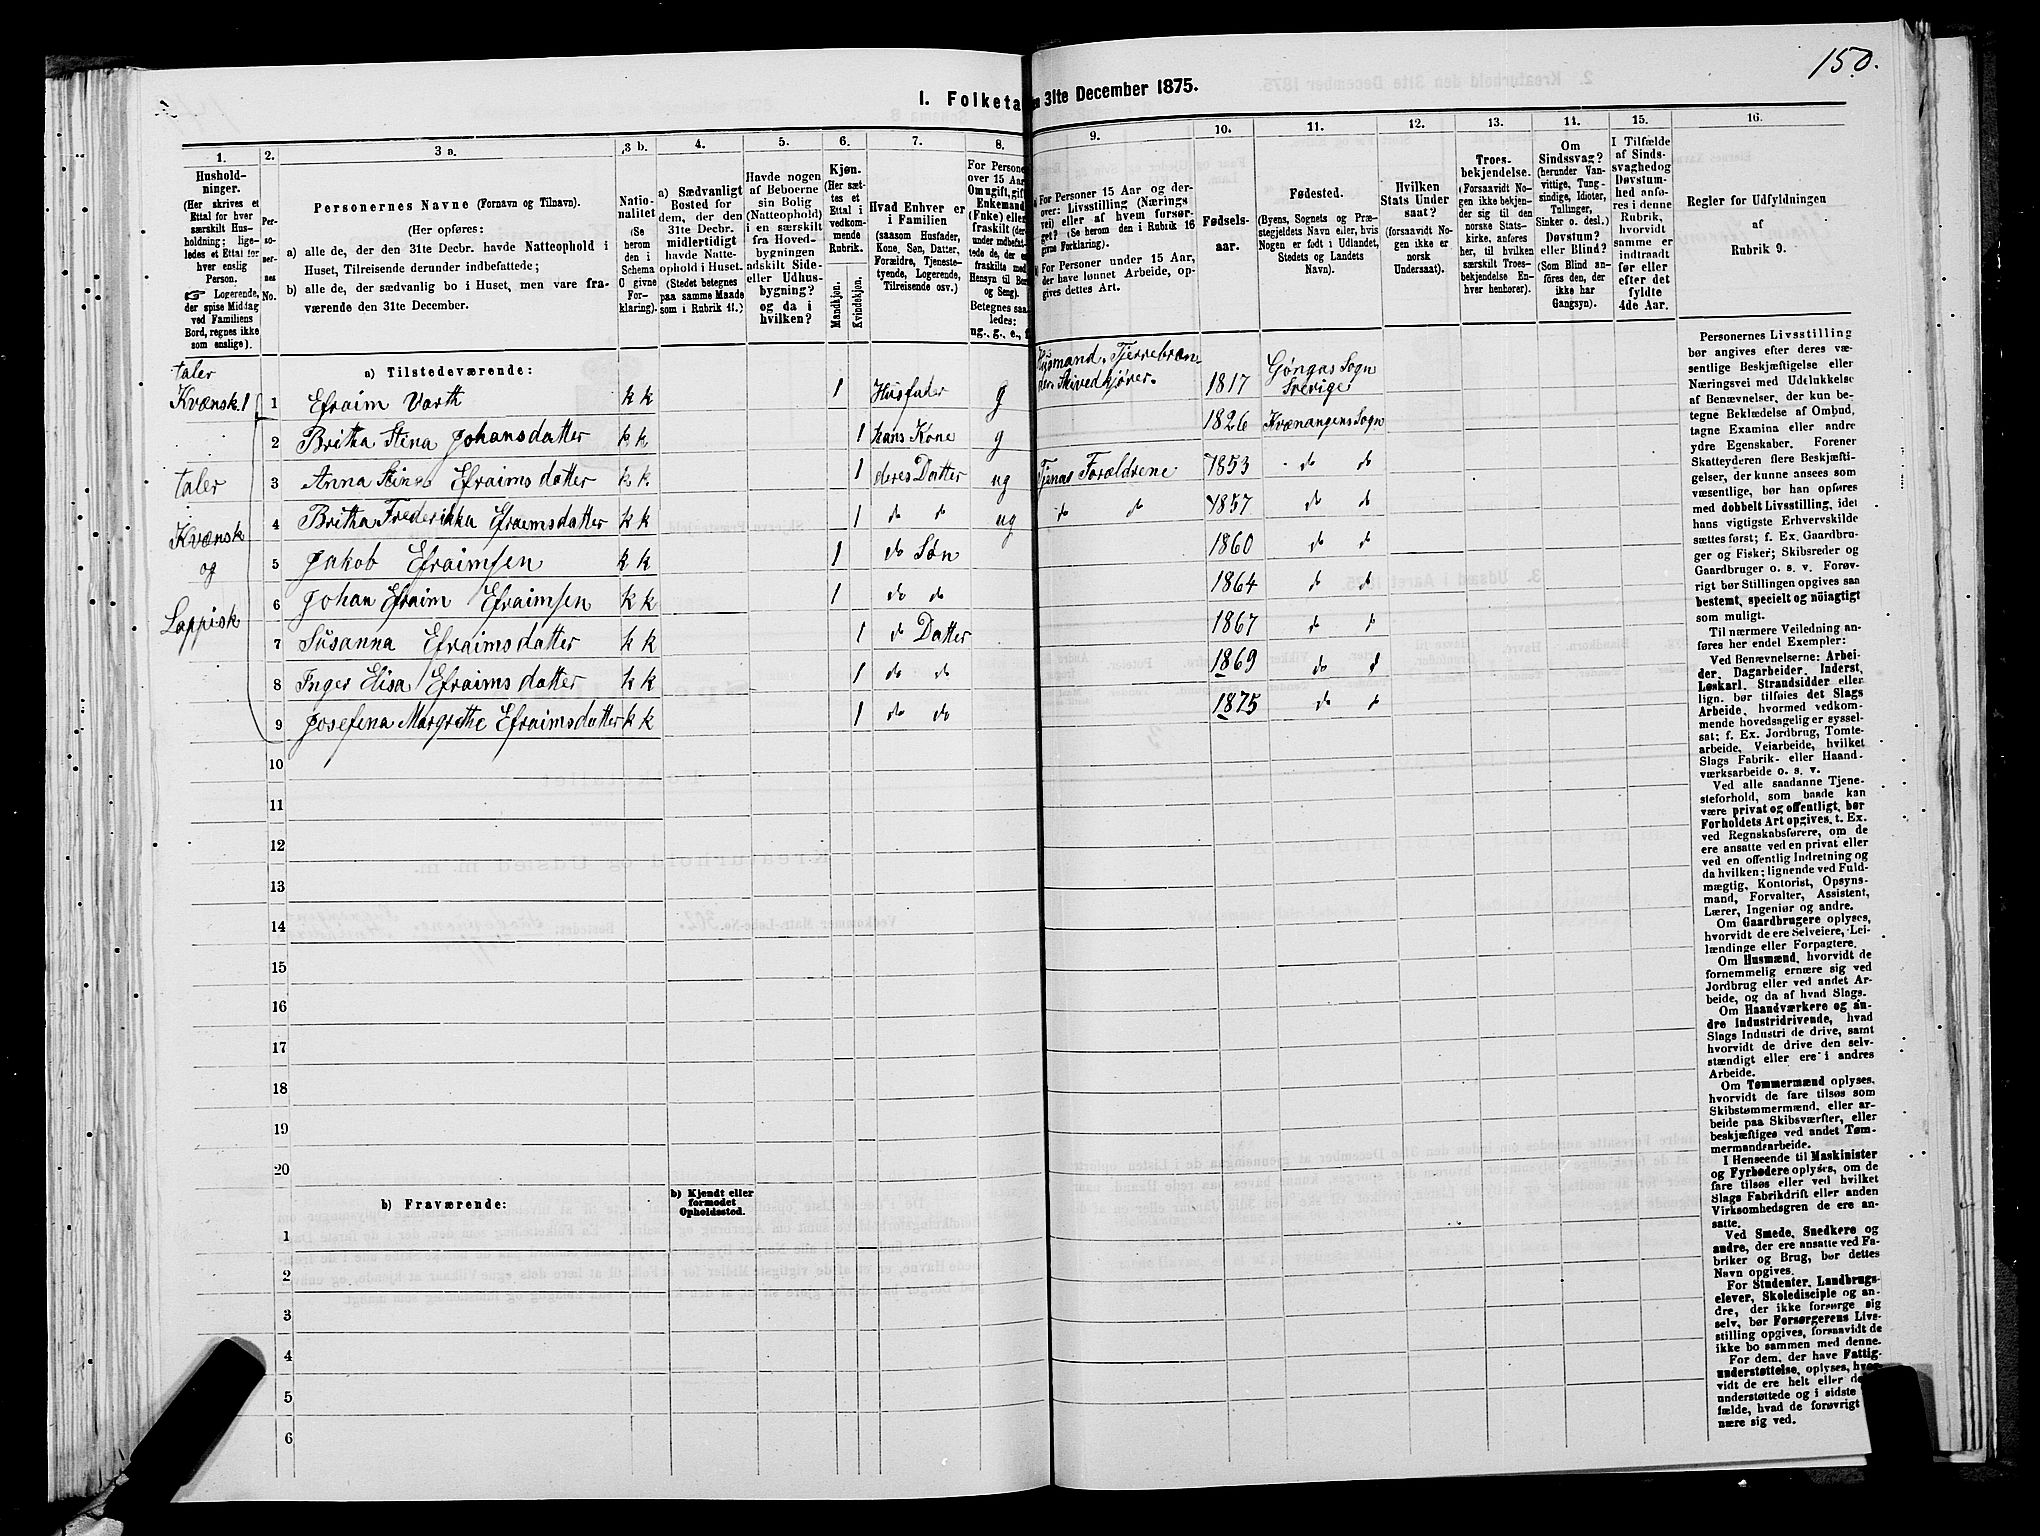 150.
I. Folketa
n 31te December 1875.
1.
2.
3 a.
3 b.
4.
5.
6.
7.
8.
9.
10.
11.
12.
13.
14.
15.
16.
Hushold-
ninger.
(Her skrives et
Ettal for hver
særskilt Hus-
holdning; lige-
ledes et Ettal
for hver enslig
Person.
☞ Logerende,
der spise Middag
ved Familiens
Bord, regnes ikke
som enslige).
Per-
so-
ner-
nes
No.
Personernes Navne (Fornavn og Tilnavn).
(Her opføres:
a) alle de, der den 31te Decbr. havde Natteophold i
Huset, Tilreisende derunder indbefattede;
b) alle de, der sædvanlig bo i Huset, men vare fra-
værende den 31te December.
Natio-
nalitet
(Se
herom
den i
Schema
C givne
For-
klaring).
a) Sædvanligt
Bosted for
dem, der den
31te Decbr.
midlertidigt
havde Natte-
ophold i Huset.
(Stedet betegnes
paa samme Maade
som i Rubrik 11.)
Havde nogen
af Beboerne
sin Bolig
(Natteophold)
i en særskilt
fra Hoved-
bygningen
adskilt Side-
eller Udhus-
bygning?
og da i
hvilken?
Kjøn.
(Her sæt-
tes et
Ettal i
vedkom-
mende
Rubrik.
Mandkjøn.
Kvindekjøn.
Hvad Enhver er
i Familien
(saasom Husfader,
Kone, Søn, Datter,
Forældre, Tjeneste-
tyende, Logerende,
Tilreisende osv.)
For Persone
over 15 Aar
Om ugift, gift
Enkemand
(Enke) eller
fraskilt (der-
under indbefat-
tede de, der ere
fraskilte med
Hensyn til Bord
og Seng).
Betegnes saa-
ledes:
ug., g., e., f
For Personer 15 Aar og der-
over: Livsstilling (Nærings
vei) eller af hvem forsør-
get? (Se herom den i Rubrik 16
givne Forklaring).
For Personer under 15 Aar,
der have lønnet Arbeide, op-
gives dettes Art.
Fødsels-
aar.
Fødested.
(Byens, Sognets og Præ-
stegjeldets Navn eller, hvis
Nogen er født i Udlandet,
Stedets og Landets
Navn).
Hvilken
Stats Under
saat?
(forsaavidt No-
gen ikke er
norsk
Undersaat).
Troes-
bekjendelse.
(Forsaavidt No-
gen ikke bekjen-
der sig til den
norske Stats-
kirke, anføres
her, til hvilken
særskilt Troes-
bekjendelse En-
hver henhører).
Om
Sindssvag?
(herunder Van-
vittige, Tung-
sindige, Idioter,
Tullinger,
Sinker o. desl.)
Døvstum?
eller Blind?
(Som Blind an-
føres den, der
ikke har
Gangsyn).
I Tilfælde
af Sinds-
svaghed og
Døvstum-
hed anfø-
res i denne
Rubrik,
hvorvidt
samme er
indtraadt
før eller
efter det
fyldte
4de Aar.
Regler for Udfyldningen
af
Rubrik 9.
a) Tilstedeværende:
taler
Kvænsk. 1
taler
Kvænsk
og
Lappisk
1 Efraim Varth k k 1 Husfader g Husmand, Tjerrebræn- der, Skivedkjører. 1817 Göngas Sogn Sverige
2 Britha Stena Johansdatter k k 1 hans Kone g 1826 Kvænangens Sogn
3 Anna Stina Efraimsdatter k k 1 deres Datter ug Tjenes Forældrene 1853 do do
4 Britha Frederikka Efraimsdatter k k 1 do do ug do do 1857 do do
5 Jakob Efraimsen k k 1 do Søn 1860 do do
6 Johan Efraim Efraimsen k k 1 do do 1864 do do
7 Susanna Efraimsdatter k k 1 do Datter 1867 do do
8 Inger Elisa Efraimsdatter k k 1 do do 1869 do do
9 Josefena Margrethe Efraimsdatter k k 1 do do 1875 do do
10
11
12
13
14
15
16
17
18
19
20
b) Fraværende:
b) Kjendt eller
formodet
Opholdssted.
1
2
3
4
5
6
Personernes Livsstilling
bør angives efter deres væ-
sentlige Beskjæftigelse eller
Næringsvei med Udelukkelse
af Benævnelser, der kun be-
tegne Beklædelse af Ombud,
tagne Examina eller andre
ydre Egenskaber. Forener
Skatteyderen flere Beskjæfti-
gelser, der kunne ansees som
væsentlige, bør han opføres
med dobbelt Livsstilling, idet
hans vigtigste Erhvervskilde
sættes først; f. Ex. Gaardbru-
ger og Fisker; Skibsreder og
Gaardbruger o. s. v. Forøv-
rigt bør Stillingen opgives saa
bestemt, specielt og nöiagtigt
som muligt.
Til nærmere Veiledning an-
føres her endel Exempler:
Ved Benævnelserne: Arbei-
der, Dagarbeider, Inderst,
Løskarl, Strandsidder eller
lign. bør tilføies det Slags
Arbeide, hvormed vedkom-
mende hovedsagelig er syssel-
sat; f. Ex. Jordbrug, Tomte-
arbeide, Veiarbeide, hvilket
Slags Fabrik- eller Haand-
værksarbeide o. s. v.
Ved alle saadanne Tjene-
steforhold, som baade kan
være privat og offentligt, bør
Forholdets Art opgives, t. Ex.
ved Regnskabsførere, om de
ere ansatte ved en privat eller
ved en offentlig Indretning og
da hvilken; lignende ved Fuld-
mægtig, Kontorist, Opsyns-
mand, Forvalter, Assistent,
Lærer, Ingeniør og andre.
Om Gaardbrugere oplyses,
hvorvidt de ere Selveiere, Lei-
lændinge eller Forpagtere.
Om Husmænd, hvorvidt de
fornemmelig ernære sig ved
Jordbrug eller ved andet Ar-
beide, og da af hvad Slags.
Om Haandværkere og an-
dre Industridrivende, hvad
Slags Industri de drive, samt
hvorvidt de drive den selv-
stændigt eller ere i andres
Arbeide.
Om Tømmermænd oplyses,
hvorvidt de fare tilsøs som
Skibstømmermænd, eller ar-
beide paa Skibsværfter, eller
beskjæftiges ved andet Tøm-
mermandsarbeide.
I Henseende til Maskinister
og Fyrbødere oplyses, om de
fare tilsøs eller ved hvilket
Slags Fabrikdrift eller anden
Virksomhedsgren de ere an-
satte.
Ved Smede, Snedkere og
andre, der ere ansatte ved Fa-
briker og Brug, bør dettes
Navn opgives.
For Studenter, Landbrugs-
elever, Skoledisciple og an-
dre, der ikke forsørge sig
selv, bør Forsørgerens Livs-
stilling opgives, forsaavidt de
ikke bo sammen med denne.
For dem, der have Fattig-
understøttelse, oplyses, hvor-
vidt de ere helt eller de
understøttede og i sidste
fælde, hvad de forøvrigt
nære sig ved.